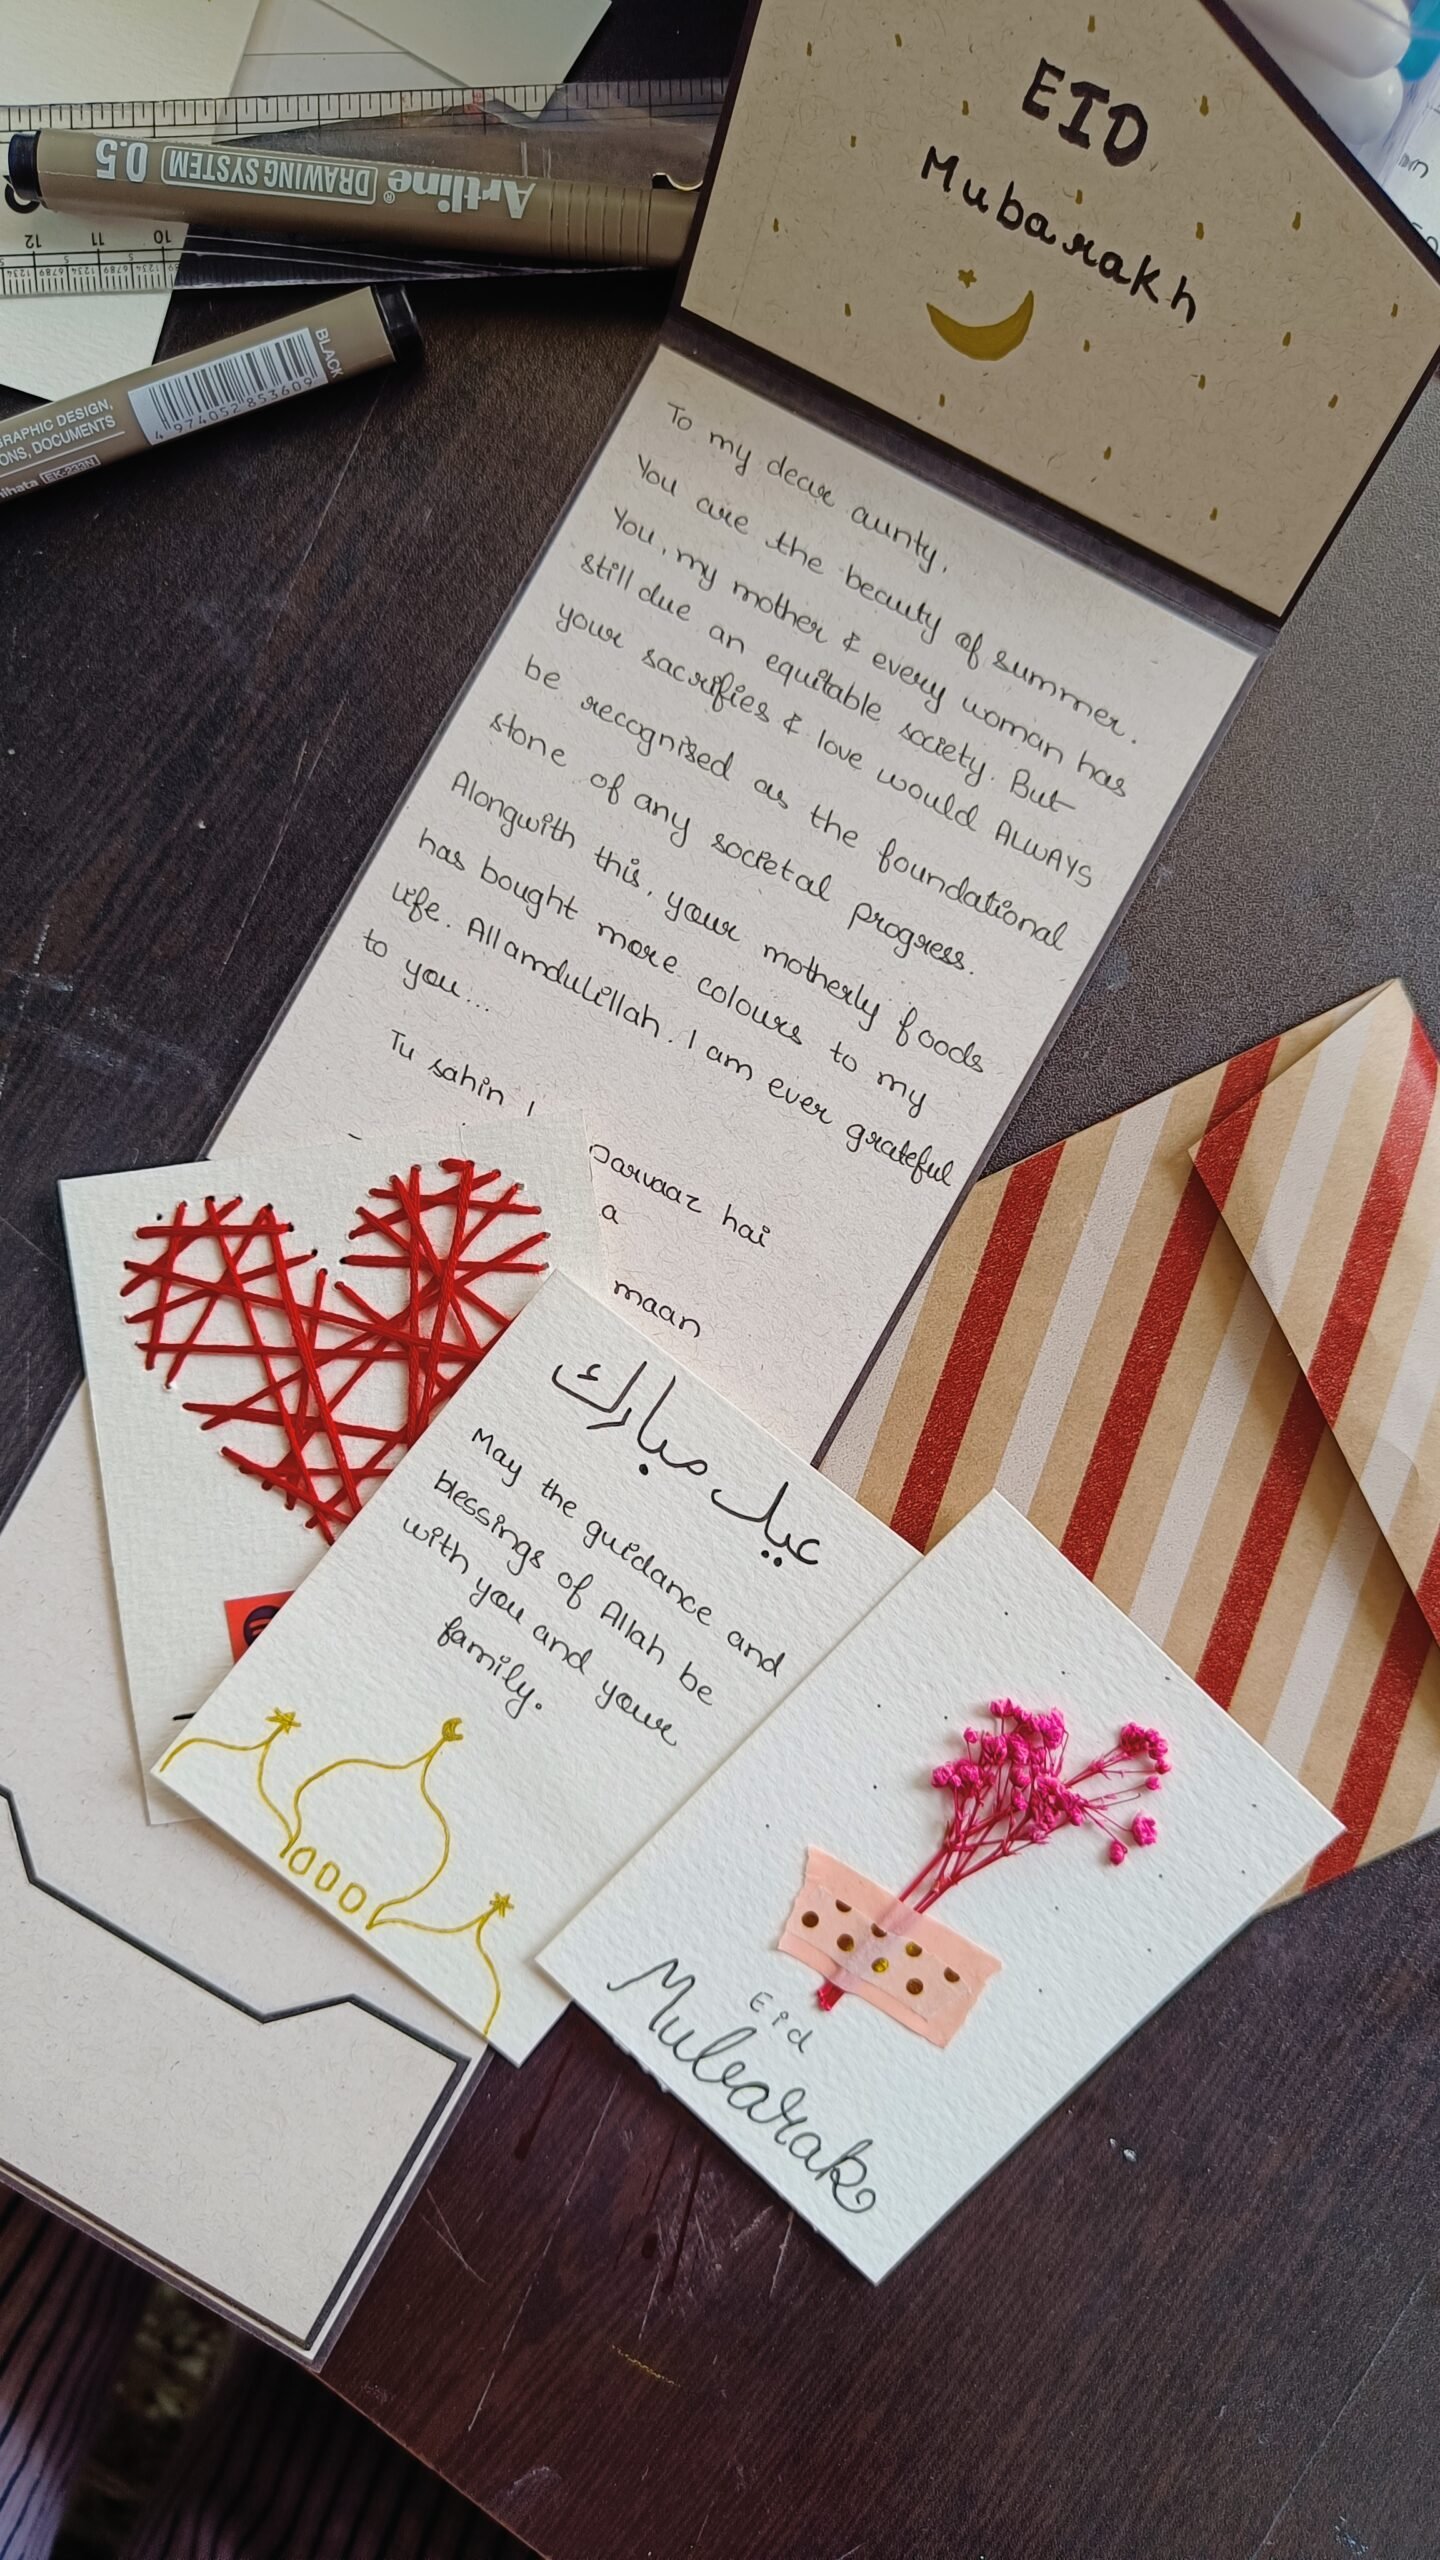 EID
Mubarakh
To my dear aunty,
You are the beauty of summer.
You, my mother & every woman has
still due an equitable society. But
your sacrifies & love would ALWAYS
be recognised as the foundational
stone of any societal progress.
Alongwith this, your motherly foods
has bought more colours to my
life. Allamdulillah. I am ever grateful
to you...
Tu sahin
parvaaz hai
a
maan
عيد مبارك
May the guidance and
blessings of Allah be
with you and your
family.
Eid
Mubarak
Artline® DRAWING SYSTEM 0.5
12 11 10
BLACK
4 974052 853609
GRAPHIC DESIGN,
ONS, DOCUMENTS
hihata EK-233N